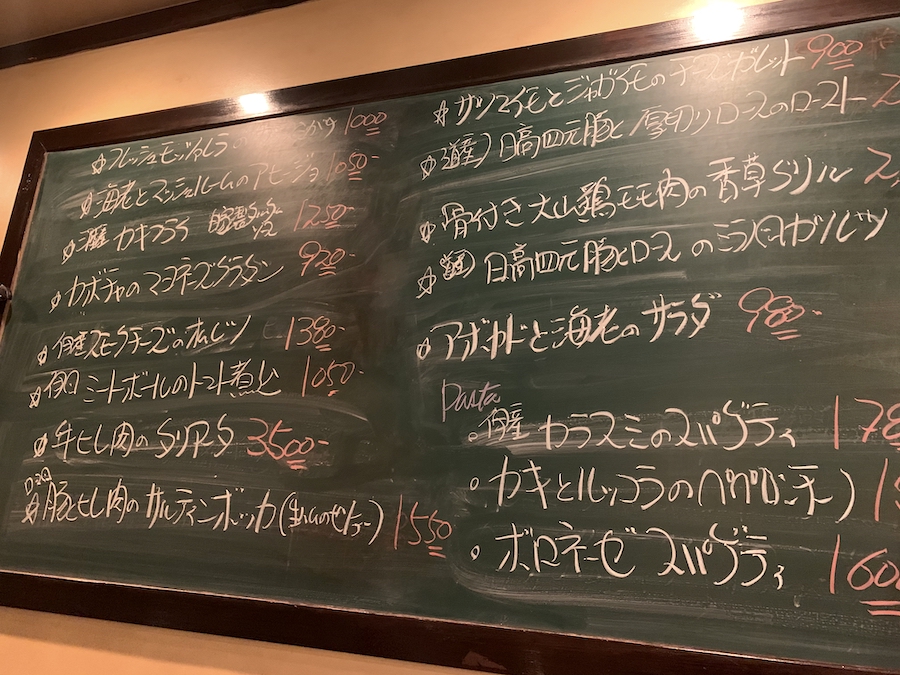 フレッシュモッツァレラの 1000
海老とマッシュルームのアヒージョ 1080-
カキフライ 自家製タルタルソース 1250-
カボチャのマヨネーズグラタン 920-
スモークチーズのオムレツ 1380-
ミートボールのトマト煮込 1050-
牛ヒレ肉のタリアータ 3500-
豚ヒレ肉のサルティンボッカ(生ハムのせソテー) 1550
サツマイモとジャガイモのチーズガレット 900
(道産)日高四元豚と厚切りロースのロースト
骨付き大山鶏モモ肉の香草グリル
(道産)日高四元豚ヒレロースのミラノ風カツレツ
アボカドと海老のサラダ 980-
Pasta
カラスミのスパゲティ 178
カキとルッコラのペペロンチーノ
ボロネーゼスパゲティ 160